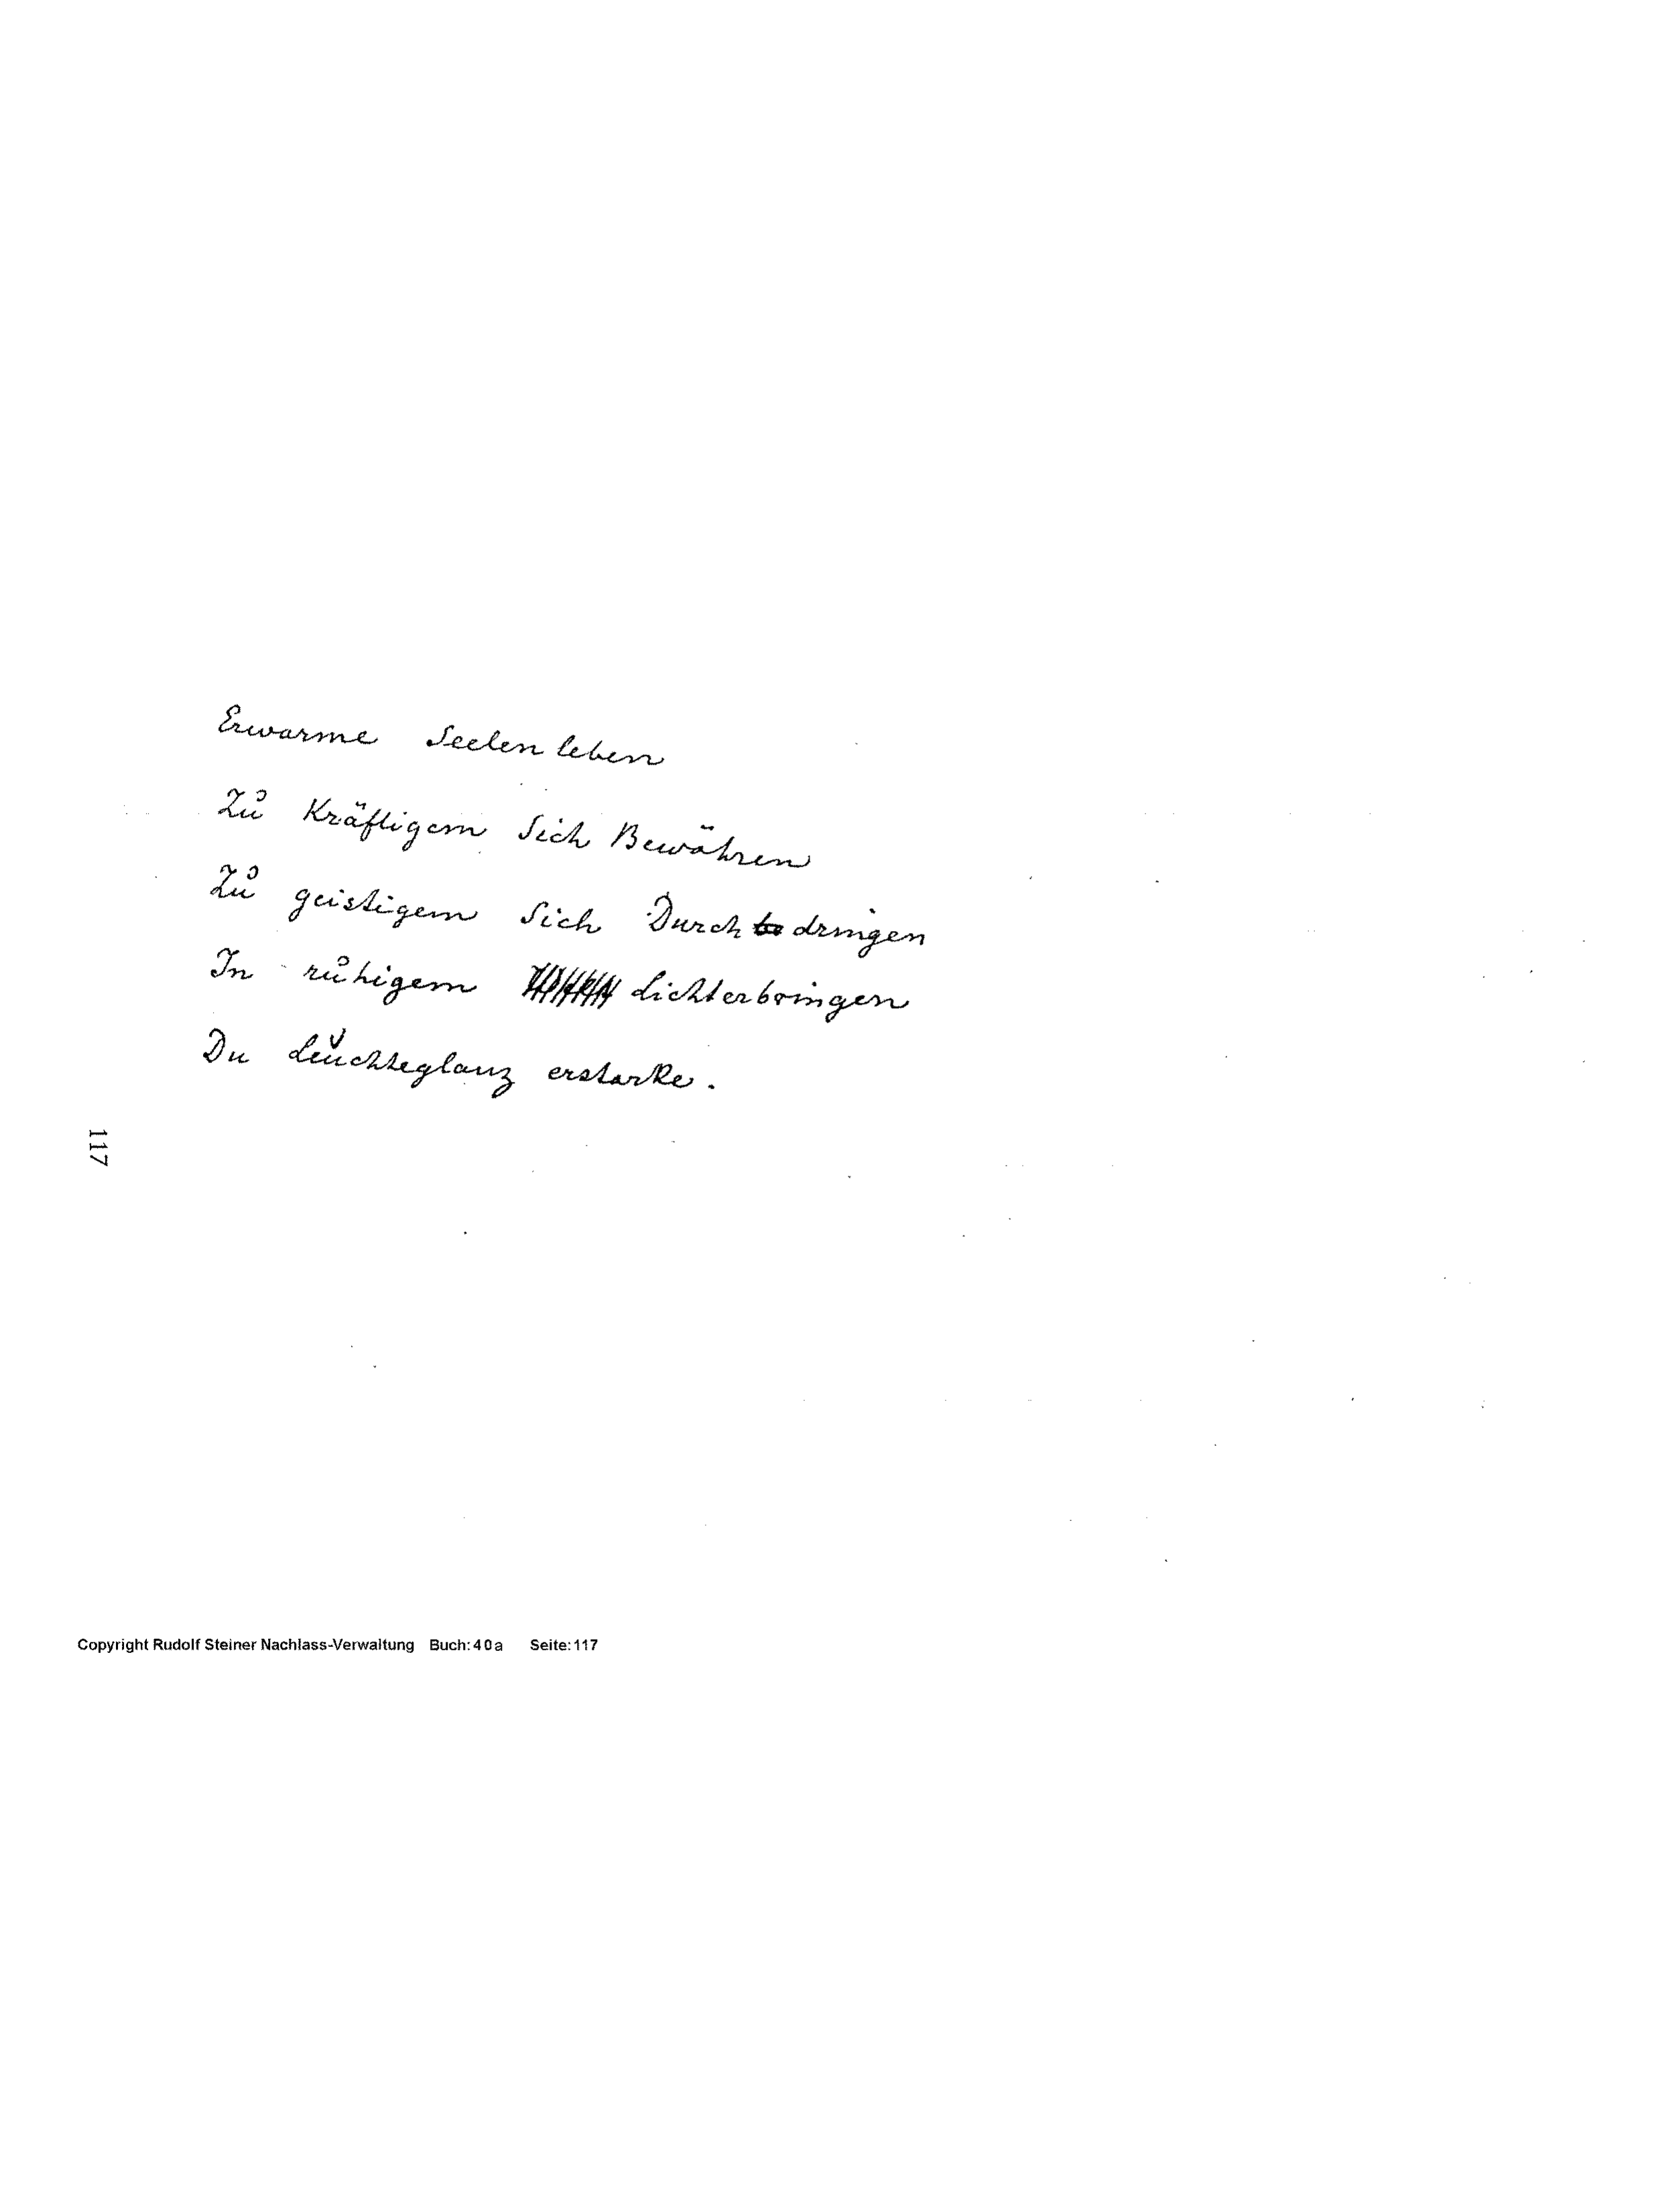 Erwarme Seelenleben
Zu Kräftigem Sich Bewähren
Zu geistigem Sich Durchdringen
In ruhigem Lichterbringen
Du Leuchteglanz erstarke.
117
Copyright Rudolf Steiner Nachlass-Verwaltung Buch: 40a Seite: 117